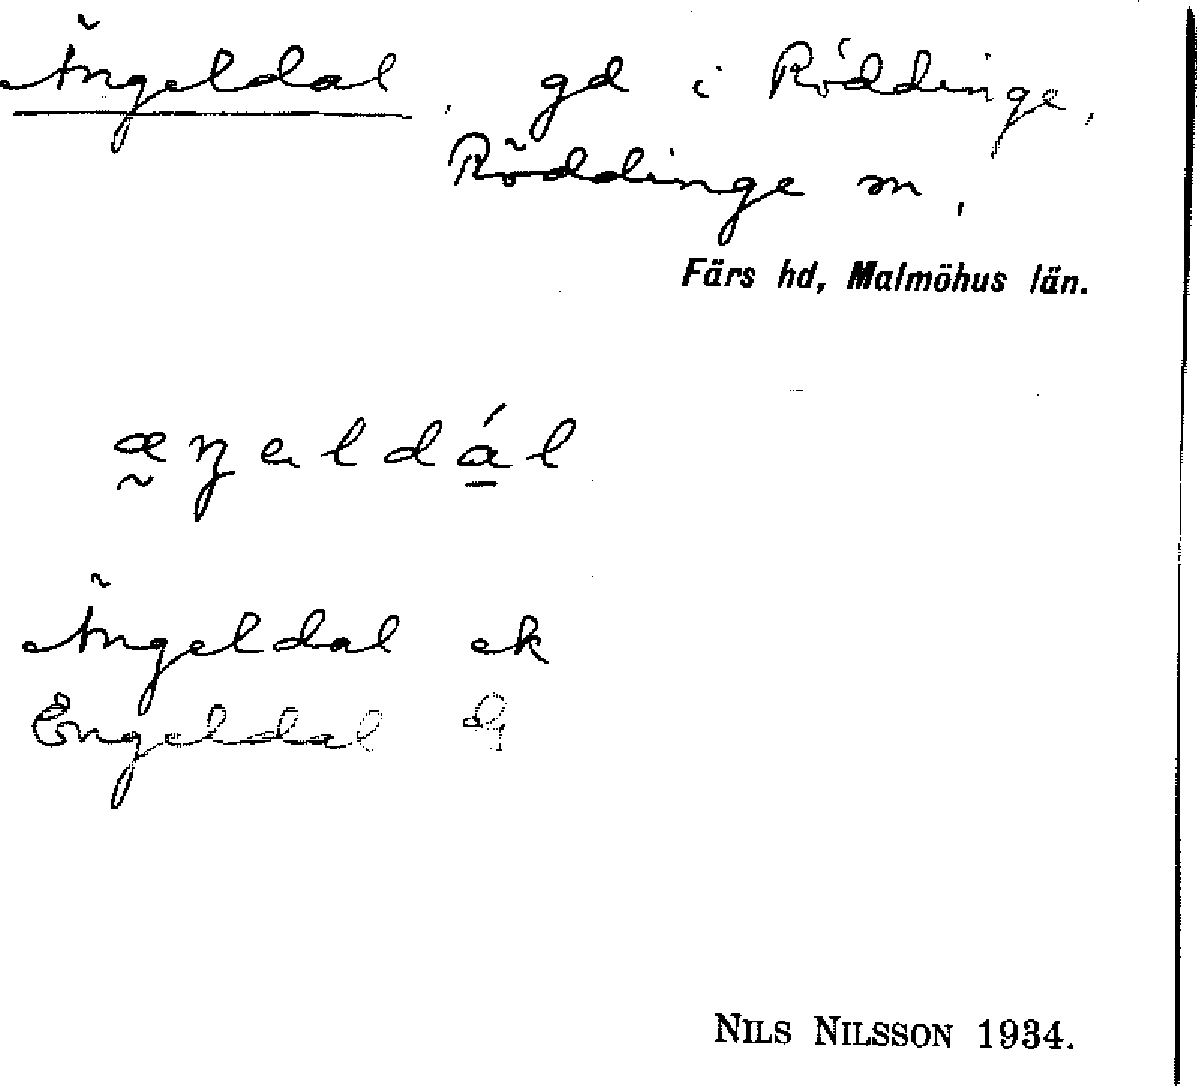 Ängeldal, gd i Röddinge,
Röddinge sn,
Färs hd, Malmöhus län.
æŋəldál
Ängeldal ek
Engeldal
NILS NILSSON 1934.